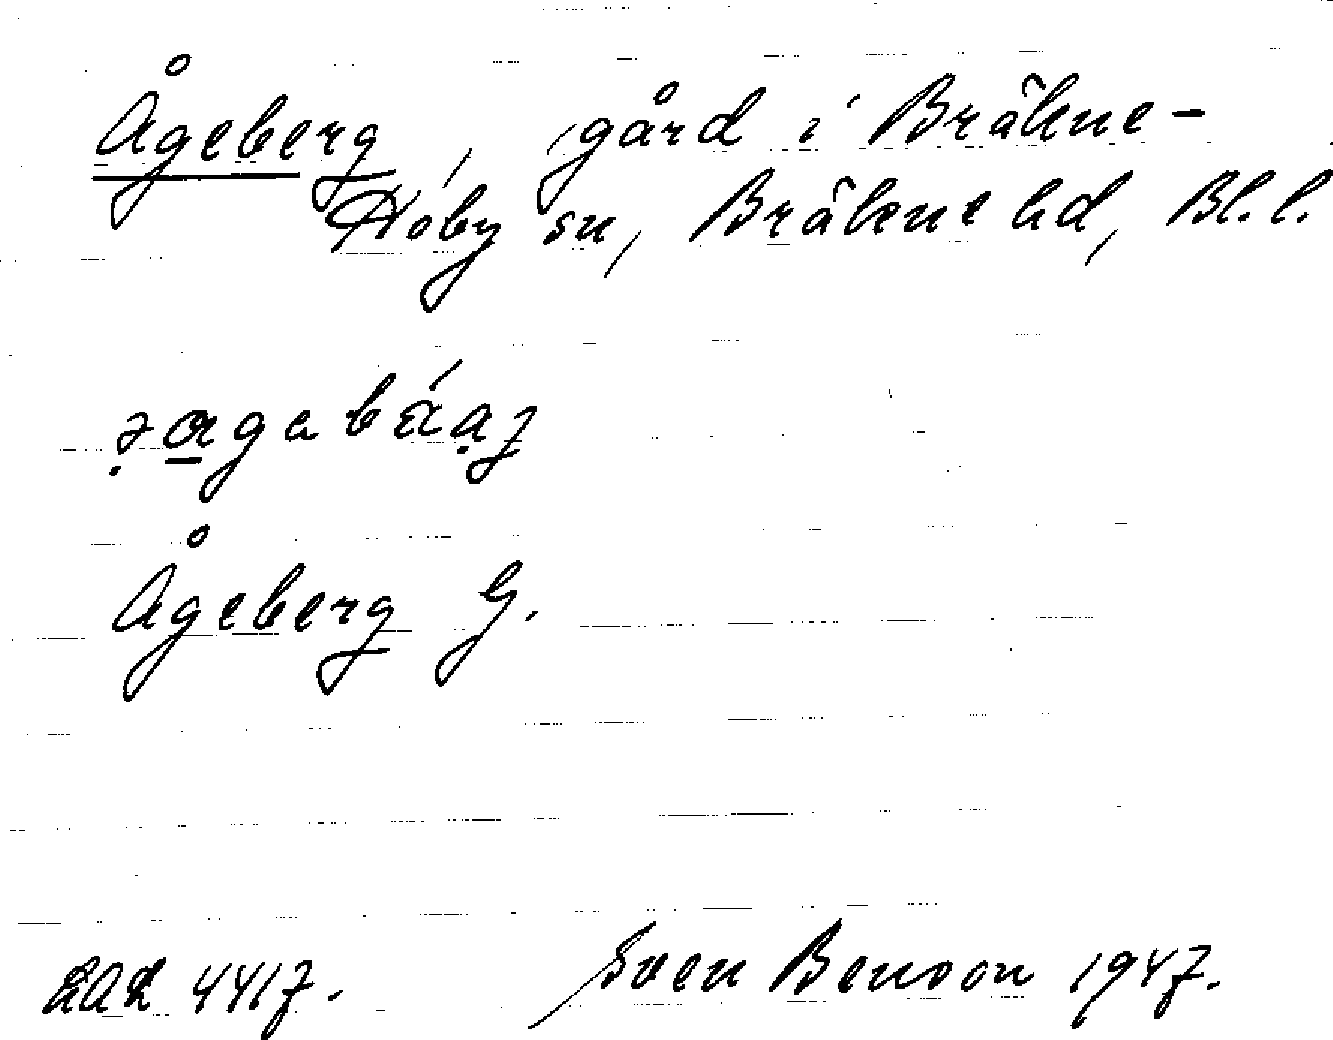 Ågeberg, gård i Bräkne-
Hoby sn, Bräkne hd, Bl. l.
Ågeberg G.
LAL 4417. Sven Benson 1947.